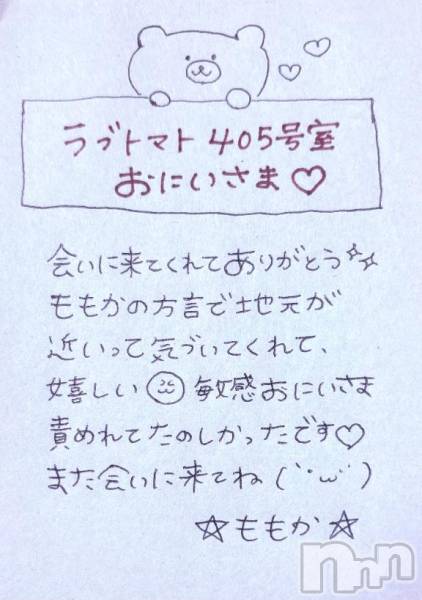 ラブトマト405号室
おにいさま♡
会いに来てくれてありがとう☆☆
ももかの方言で地元が
近いって気づいてくれて、
嬉しい 敏感おにいさま
責めれてたのしかったです♡
また会いに来てね(｀･ω･´)
☆ももか☆
nnn